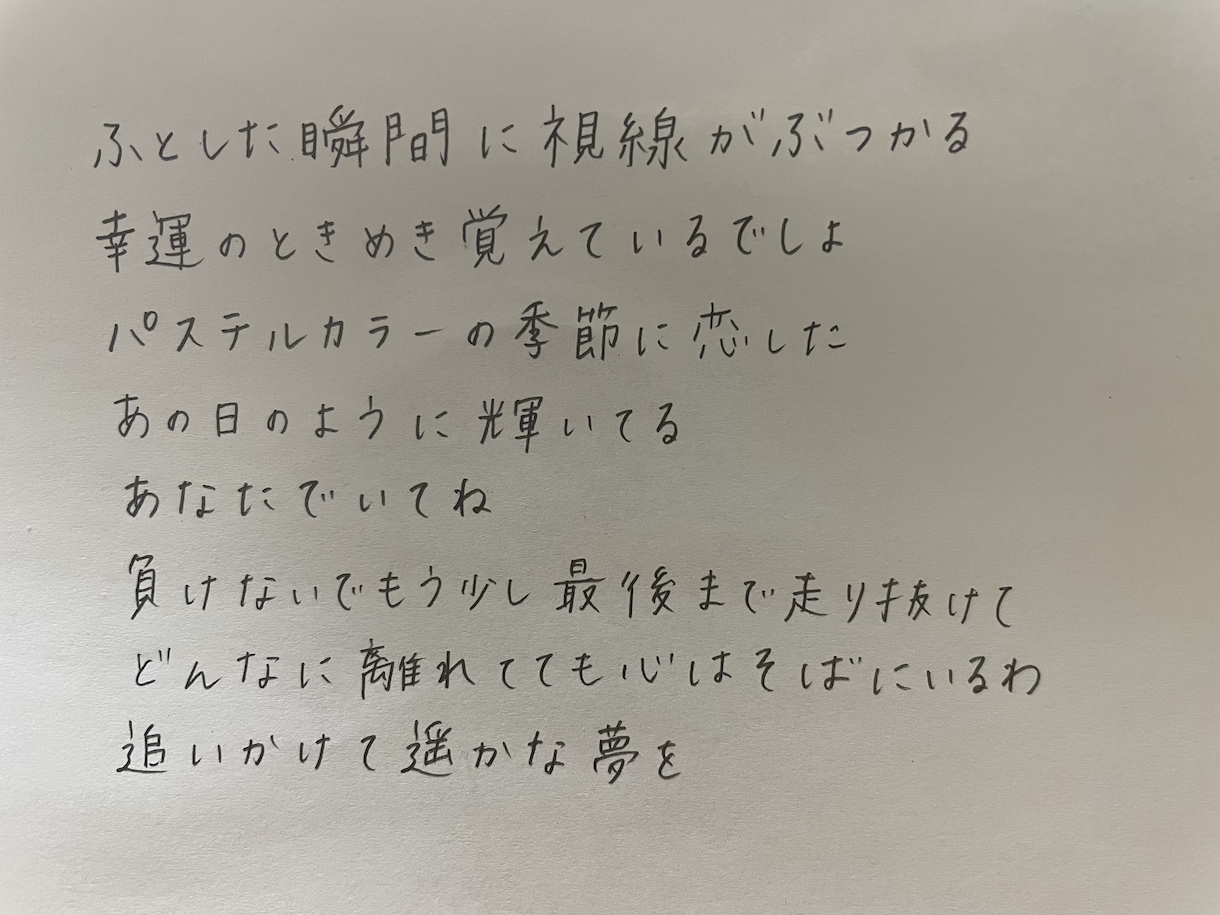 ふとした瞬間に視線がぶつかる
幸運のときめき覚えているでしょ
パステルカラーの季節に恋した
あの日のように輝いてる
あなたでいてね
負けないでもう少し最後まで走り抜けて
どんなに離れてても心はそばにいるわ
追いかけて遥かな夢を